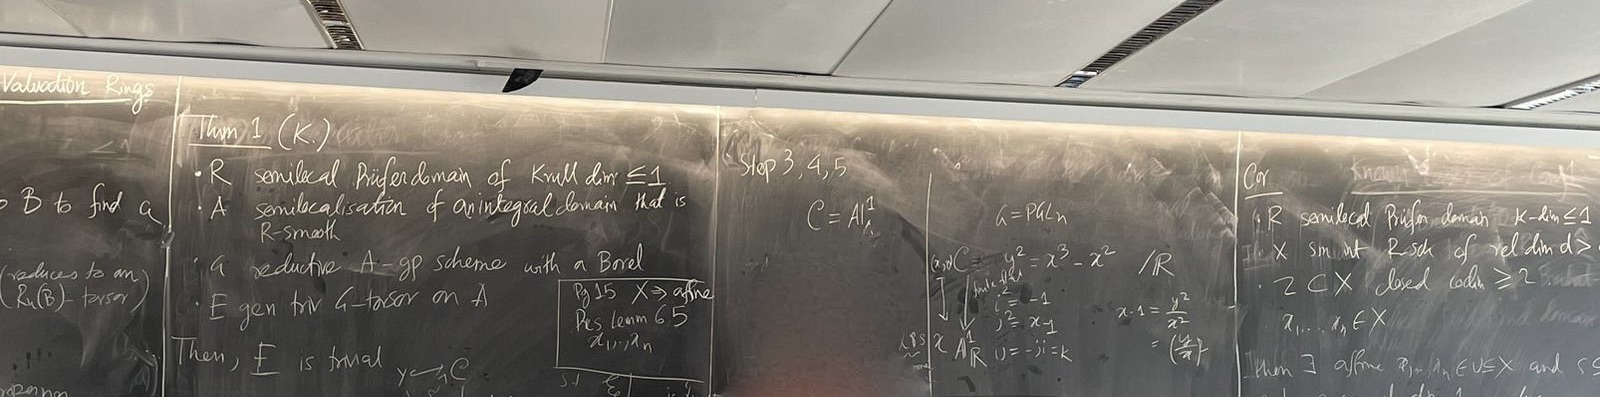 Valuation Rings
B to find a
(reduces to an
Ru(B)-torsor)
Thm 1 (K.)
· R semilocal Prüfer domain of Krull dim ≤ 1
· A semilocalisation of an integral domain that is
R-smooth
· G reductive A-gp scheme with a Borel
· E gen triv G-torsor on A
Then, E is trivial
Pg 15 X ⇒ affine
Pres lemm 6.5
x1,..,xn
y C
s.t
Step 3, 4, 5
C = A¹
G = PGLn
C: y² = x³ - x² /R
finite flat
i² = -1
j² = x-1
ij = -ji = k
x A¹R
x-1 = y²/x²
= (y/x)²
Cor
· R semilocal Prüfer domain K-dim ≤ 1
X smooth R-sch of rel dim d >
· Z ⊂ X closed codim ≥ 2
· x1,...,xn ∈ X
Then ∃ affine x1,..,xn ∈ U ⊆ X and